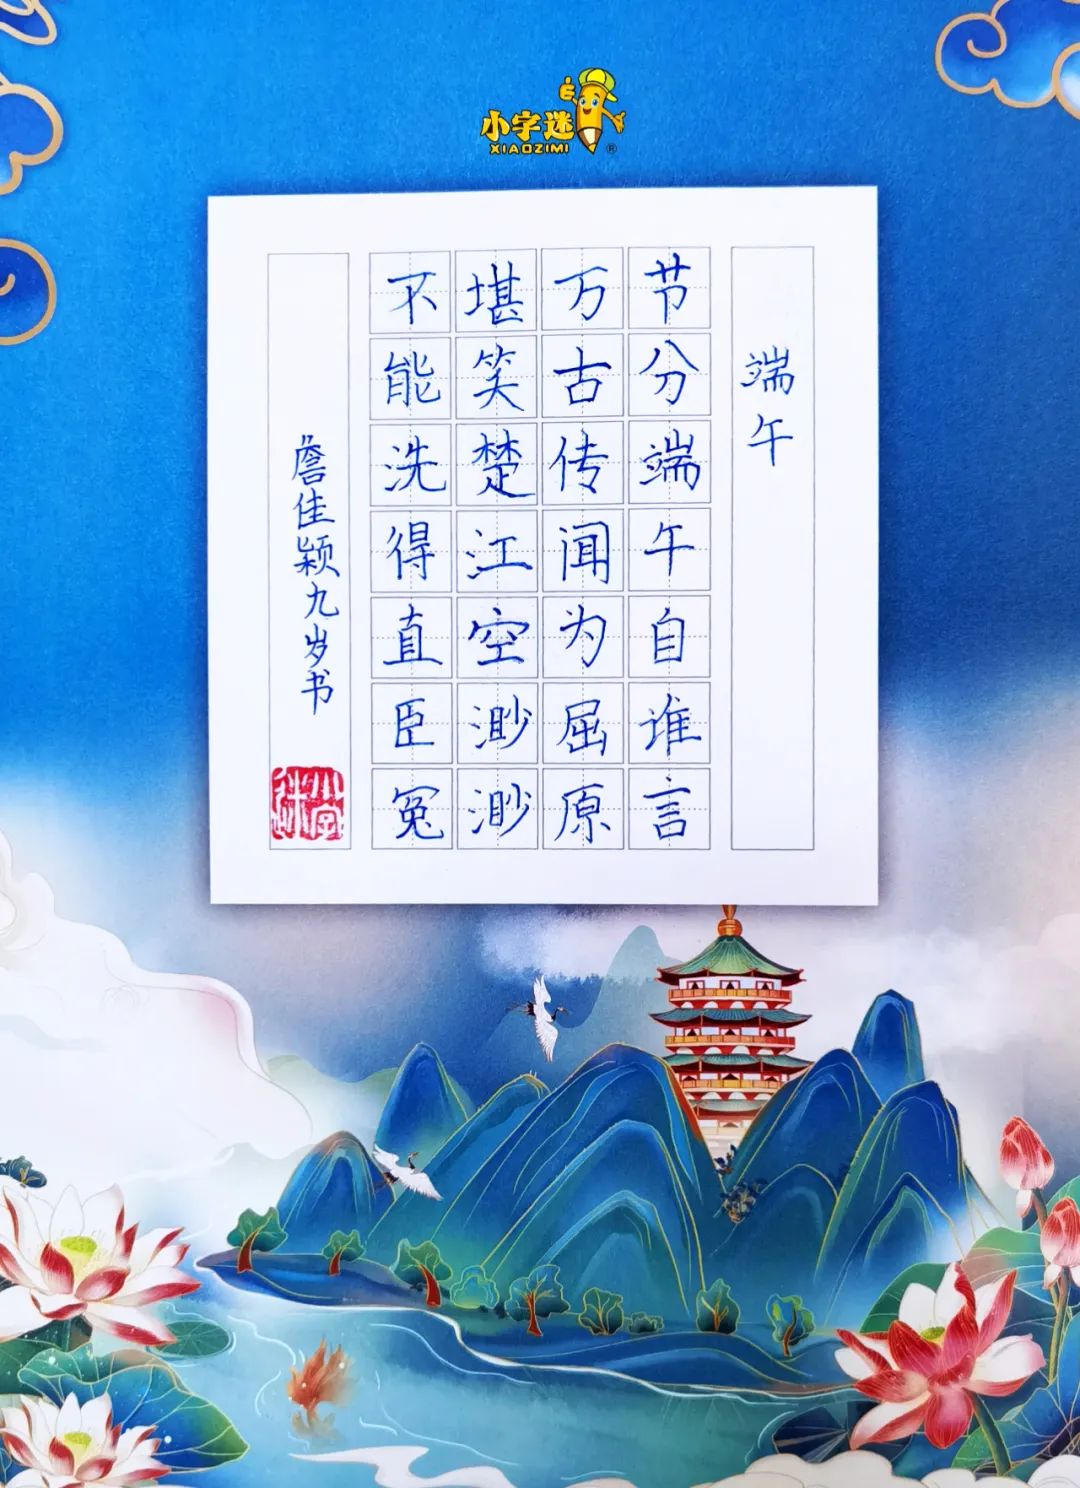 小字迷
XIAOZIMI
®
端午
节分端午自谁言
万古传闻为屈原
堪笑楚江空渺渺
不能洗得直臣冤
詹佳颖九岁书
小字迷